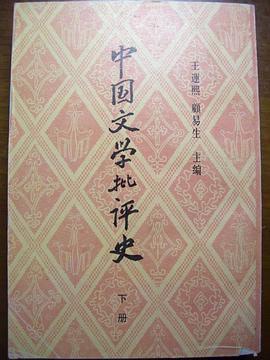 王運熙 顧易生 主编
中国文学批评史
下册